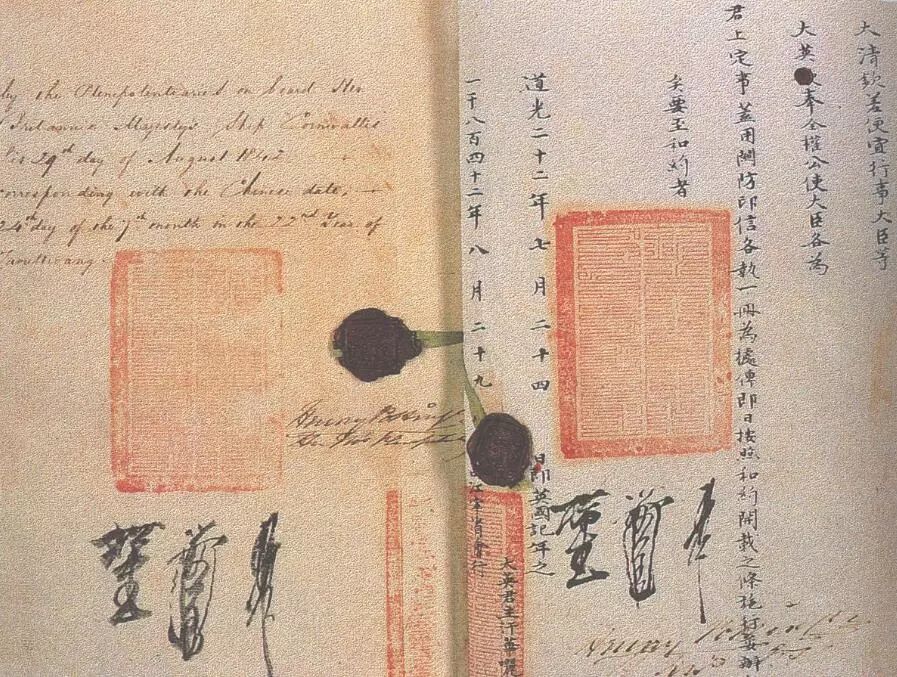 by the Plenipotentiaries on board Her
Britannic Majesty's Ship Cornwallis
this 29th day of August 1842
corresponding with the Chinese date, —
24th day of the 7th month in the 22nd Year of
Taoukwang
Henry Pottinger
大清欽差便宜行事大臣等
大英奉全權公使大臣各為
君上定事蓋用關防印信各執一冊為據俾即日按照和約開載之條施行妥辦
矣要至和約者
道光二十二年七月二十四日即英國記年之
一千八百四十二年八月二十九日由江寧省會行
大英君主汗華囇
Henry Pottinger